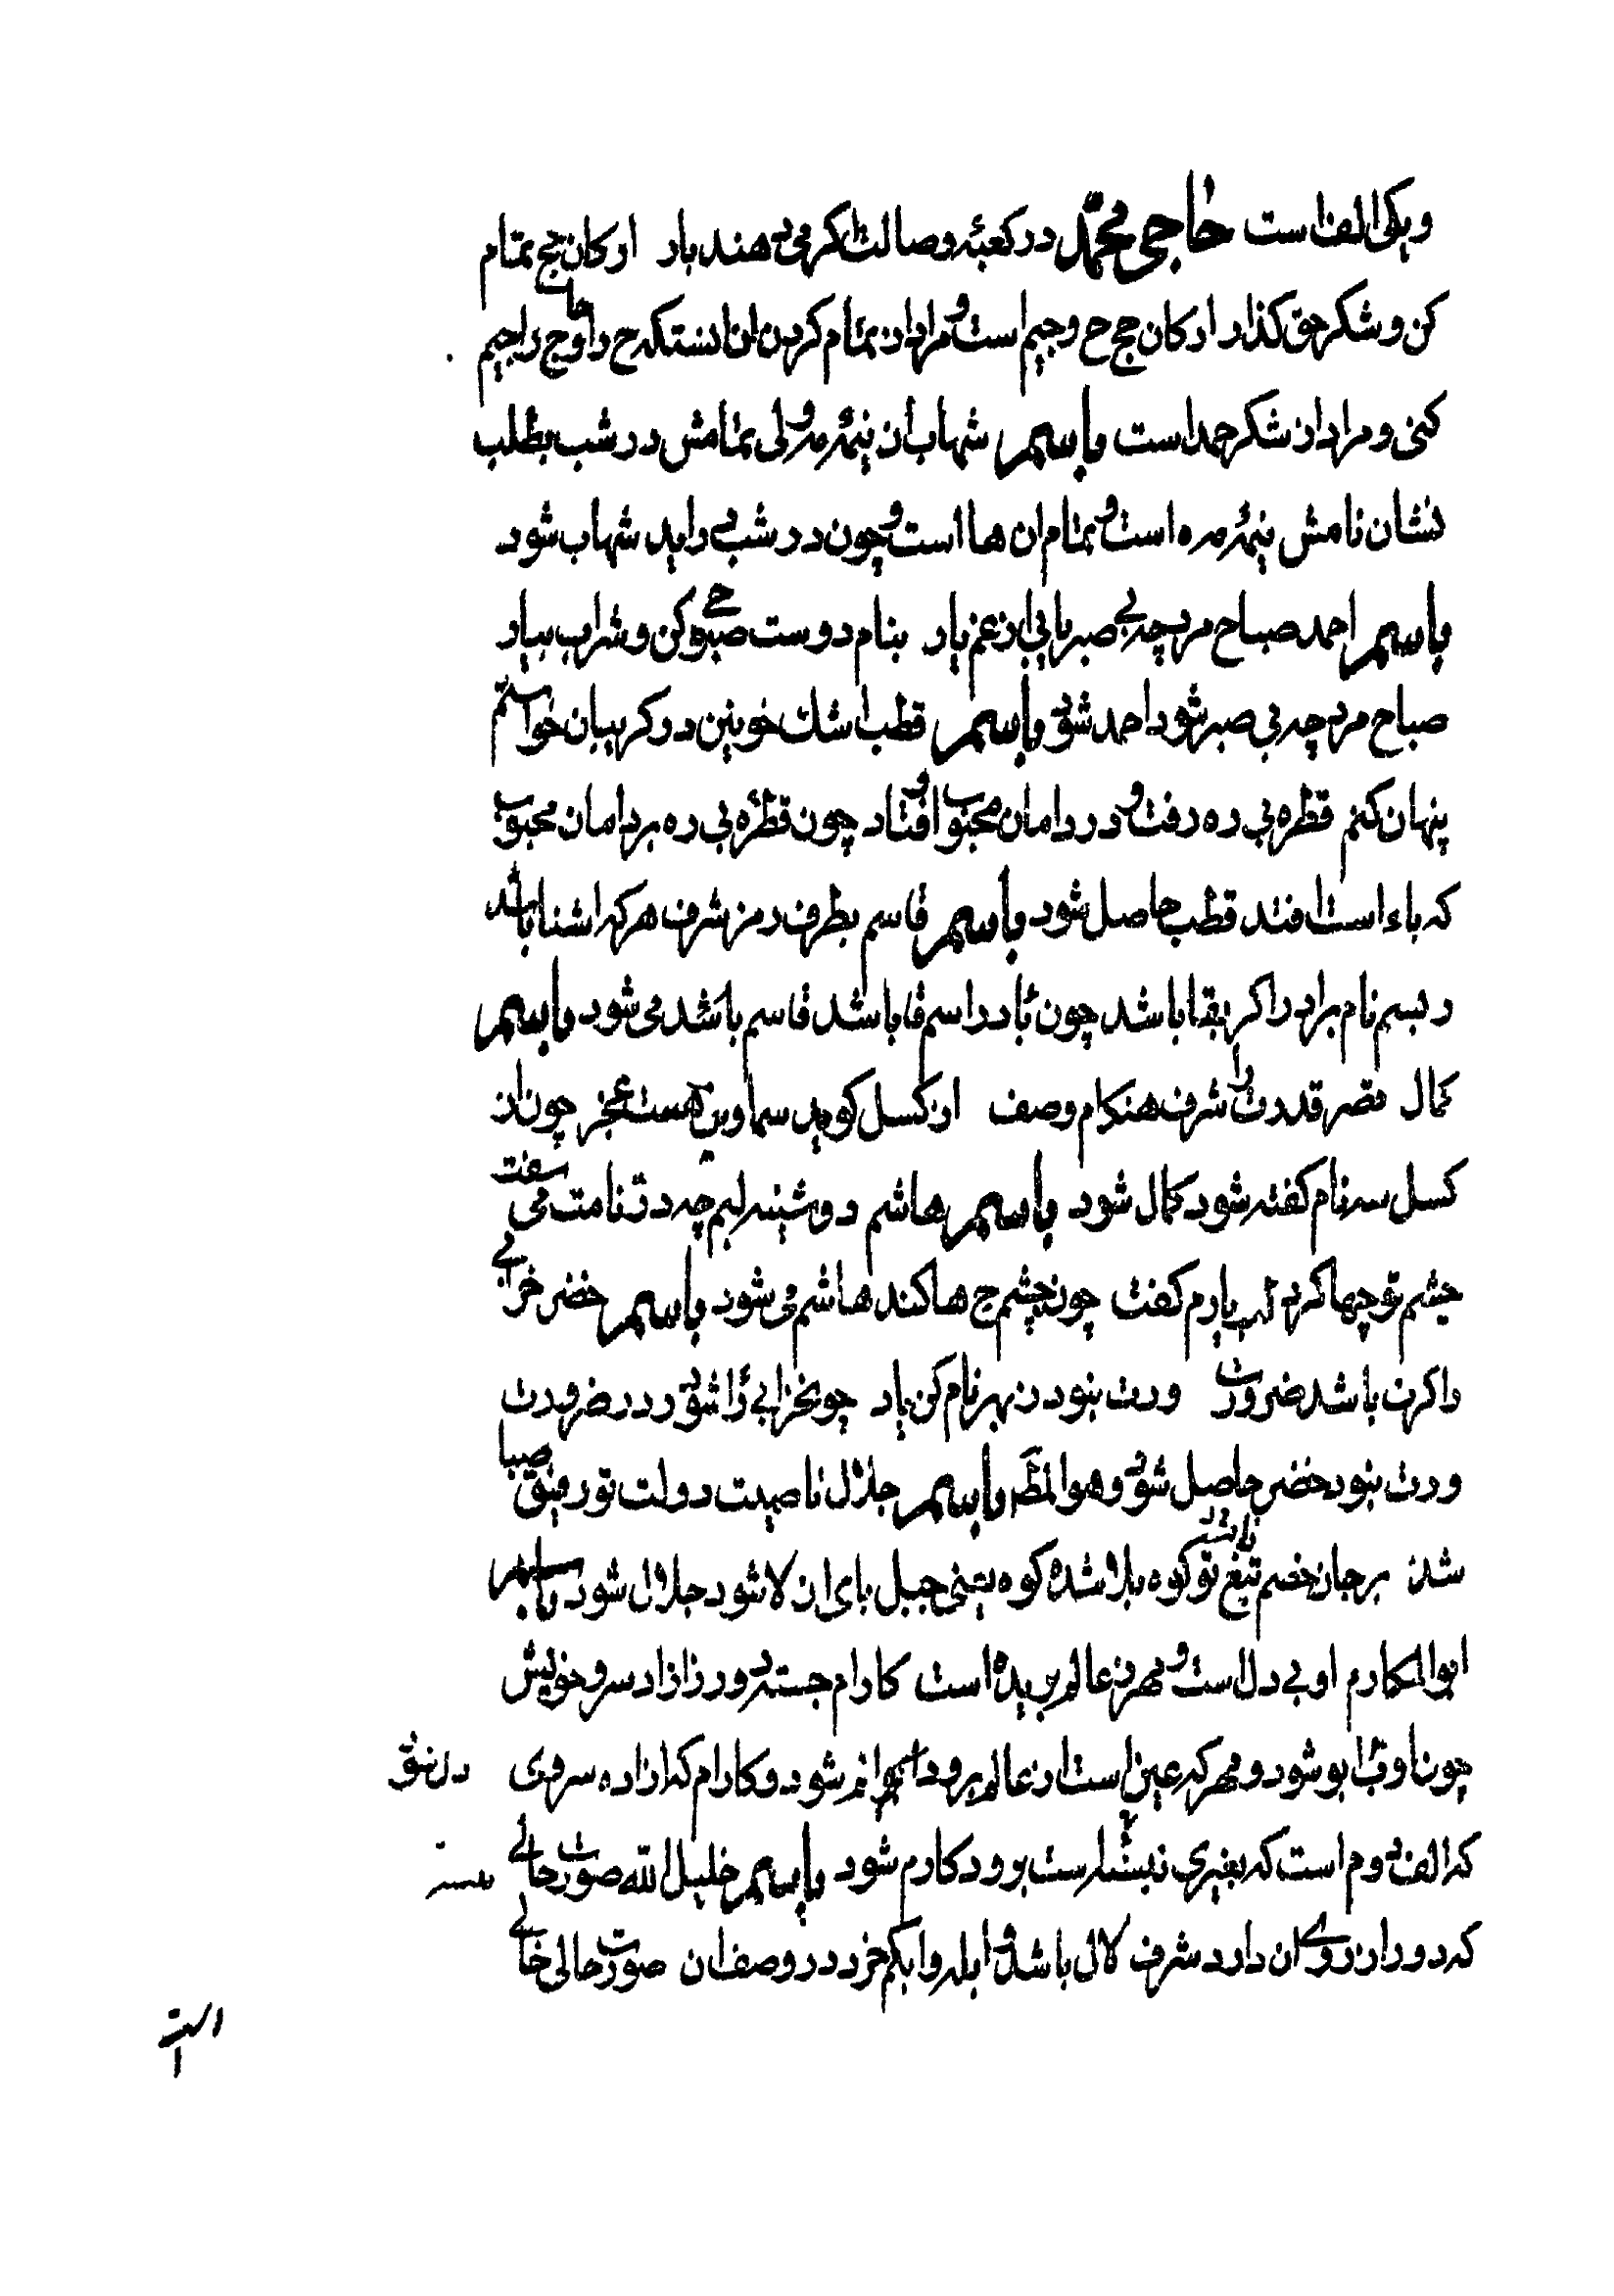 و یکی الف است حاجی محمّد در کعبهٔ وصالت اگر می دهند بار ارکان حج تمام
کن و شکر حق گذار ارکان حج ح و جیم است و مراد از تمام کردن ان انستکه ح را حا و ج را جیم
کنی و مراد از شکر حمد است باسم شهاب ان نیمهٔ مه ولی تمامش در شب بطلب
نشان نامش نیمهٔ مه ه است و تمام ان ها است و چون در شب در اید شهاب شود
باسم احمد صباح مرد چه بی صبر یابی از غم یار بنام دوست صبوحی کن و شراب بیار
صباح مرد چه بی صبر شود احمد شود باسم قطب اشک خونین در کریبان خواستم
پنهان کنم قطره بی ره رفت و در دامان محبوب افتاد چون قطره بی ره بر دامان محبوب
که باء است افتد قطب حاصل شود باسم قاسم بطرف رمز شرف هر که اشنا باشد
رسم نام برارد اکر بقا باشد چون با در اسم قا باشد قاسم باشد می شود باسم
کمال قصر قدرت را شرف هنکام وصف از کسل کوید سما وین هست عجز چون از
کسل سه نام کفته شود کمال شود باسم هاشم دوشینه لبم چه در نامت می سفت
چشم تو چها کرد لب یارم کفت چون چشم ج ها کند هاشم می شود باسم خضر خرابی
را کرت باشد ضرورت ورت نبود ز بهر نام کن یاد چون خرابی را شود در ضرورت
ورت نبود خضر حاصل شود و هو المظ باسم جلال تا صیت دولت تو رفیق صبا
شد بر جان خصم تیغ تو کوه بلا شد کوه یعنی جبل بای ان لا شود جلال شود باسم
ابوالمکارم او بی دل است و مهر ز عالم بریده است کارام جسته در ورا ازاد سرو خویش
چون او با بو شود و مهر که عین است از عالم برود الم شود و کارام که ازاده سروی
که الف و م است که بغیری برود کارم شود باسم خلیل الله صورت حالی
که دوران روی ان دارد شرف لال باشد ابله و ابکم خرد در وصف ان صورت حالی